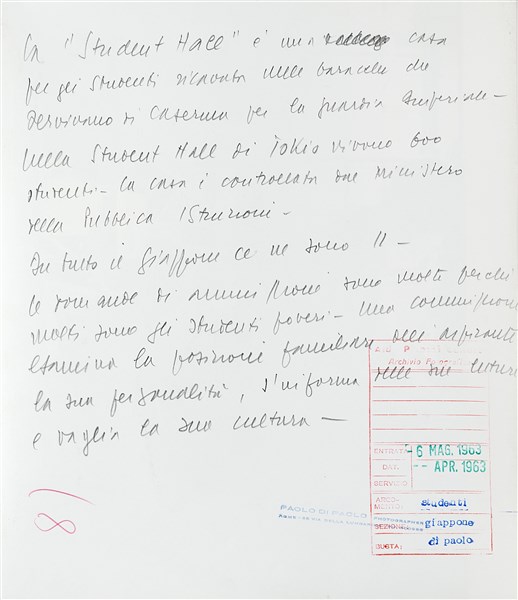 La "Student Hall" è una casa
per gli studenti ricavata nelle baracche che
servivano di caserma per la guardia Imperiale -
Nella Student Hall di Tokio vivono 600
studenti - la casa è controllata dal Ministero
della Pubblica Istruzione -
In tutto il Giappone ce ne sono 11 -
le domande di ammissione sono molte perché
molti sono gli studenti poveri - una commissione
esamina la posizione familiare dell'aspirante
la sua personalità, s'informa delle sue letture
e vaglia la sua cultura -
Archivio
ENTRATA - 6 MAG. 1963
DAL -- APR. 1963
SERVIZIO
ARGO-
MENTO: studenti
SEZIONE: giappone
BUSTA: di paolo
PAOLO DI PAOLO
PHOTOGRAPHER
81